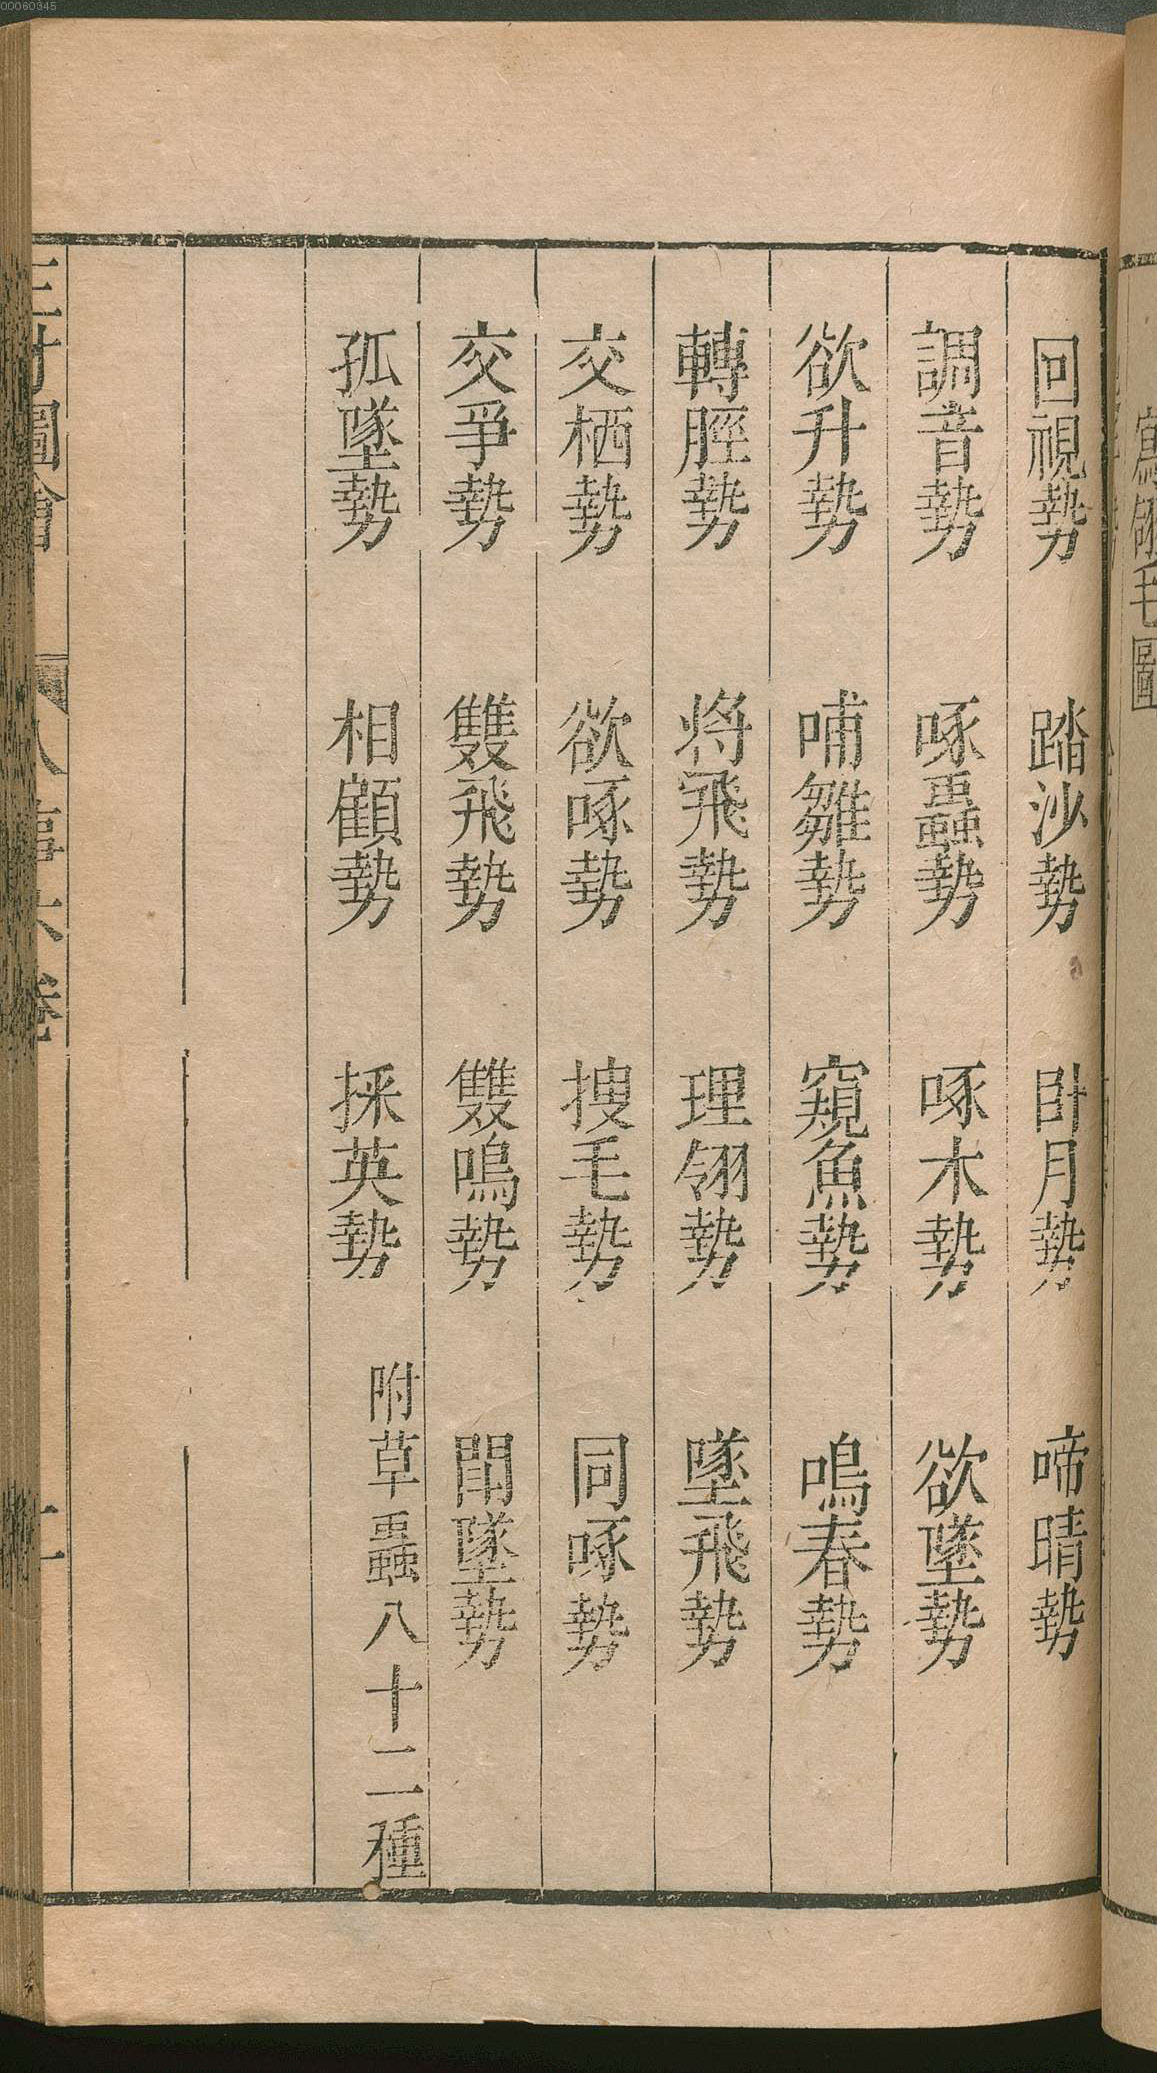 回視勢 踏沙勢 臥月勢 啼晴勢
調音勢 啄蟲勢 啄木勢 欲墜勢
欲升勢 哺雛勢 窺魚勢 鳴春勢
轉脛勢 將飛勢 理翎勢 墜飛勢
交栖勢 欲啄勢 搜毛勢 同啄勢
交爭勢 雙飛勢 雙鳴勢 鬪墜勢
孤墜勢 相顧勢 採英勢 附草蟲八十二種
三才圖會 人事六卷
00060345